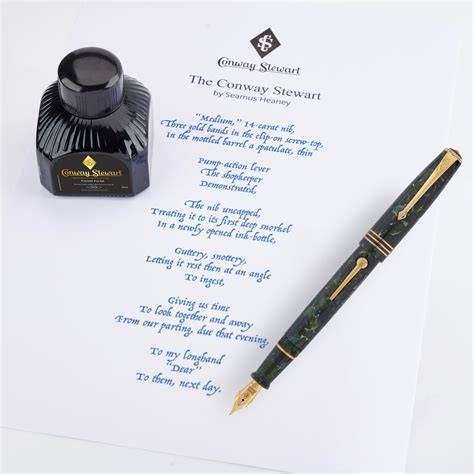 Conway Stewart
The Conway Stewart
by Seamus Heaney
"Medium," 14-carat nib,
Three gold bands in the clip-on screw-top,
In the mottled barrel a spatulate, thin
Pump-action lever
The shopkeeper
Demonstrated,
The nib uncapped,
Treating it to its first deep snorkel
In a newly opened ink-bottle,
Guttery, snottery,
Letting it rest then at an angle
To ingest,
Giving us time
To look together and away
From our parting, due that evening,
To my longhand
"Dear"
To them, next day.
Conway Stewart